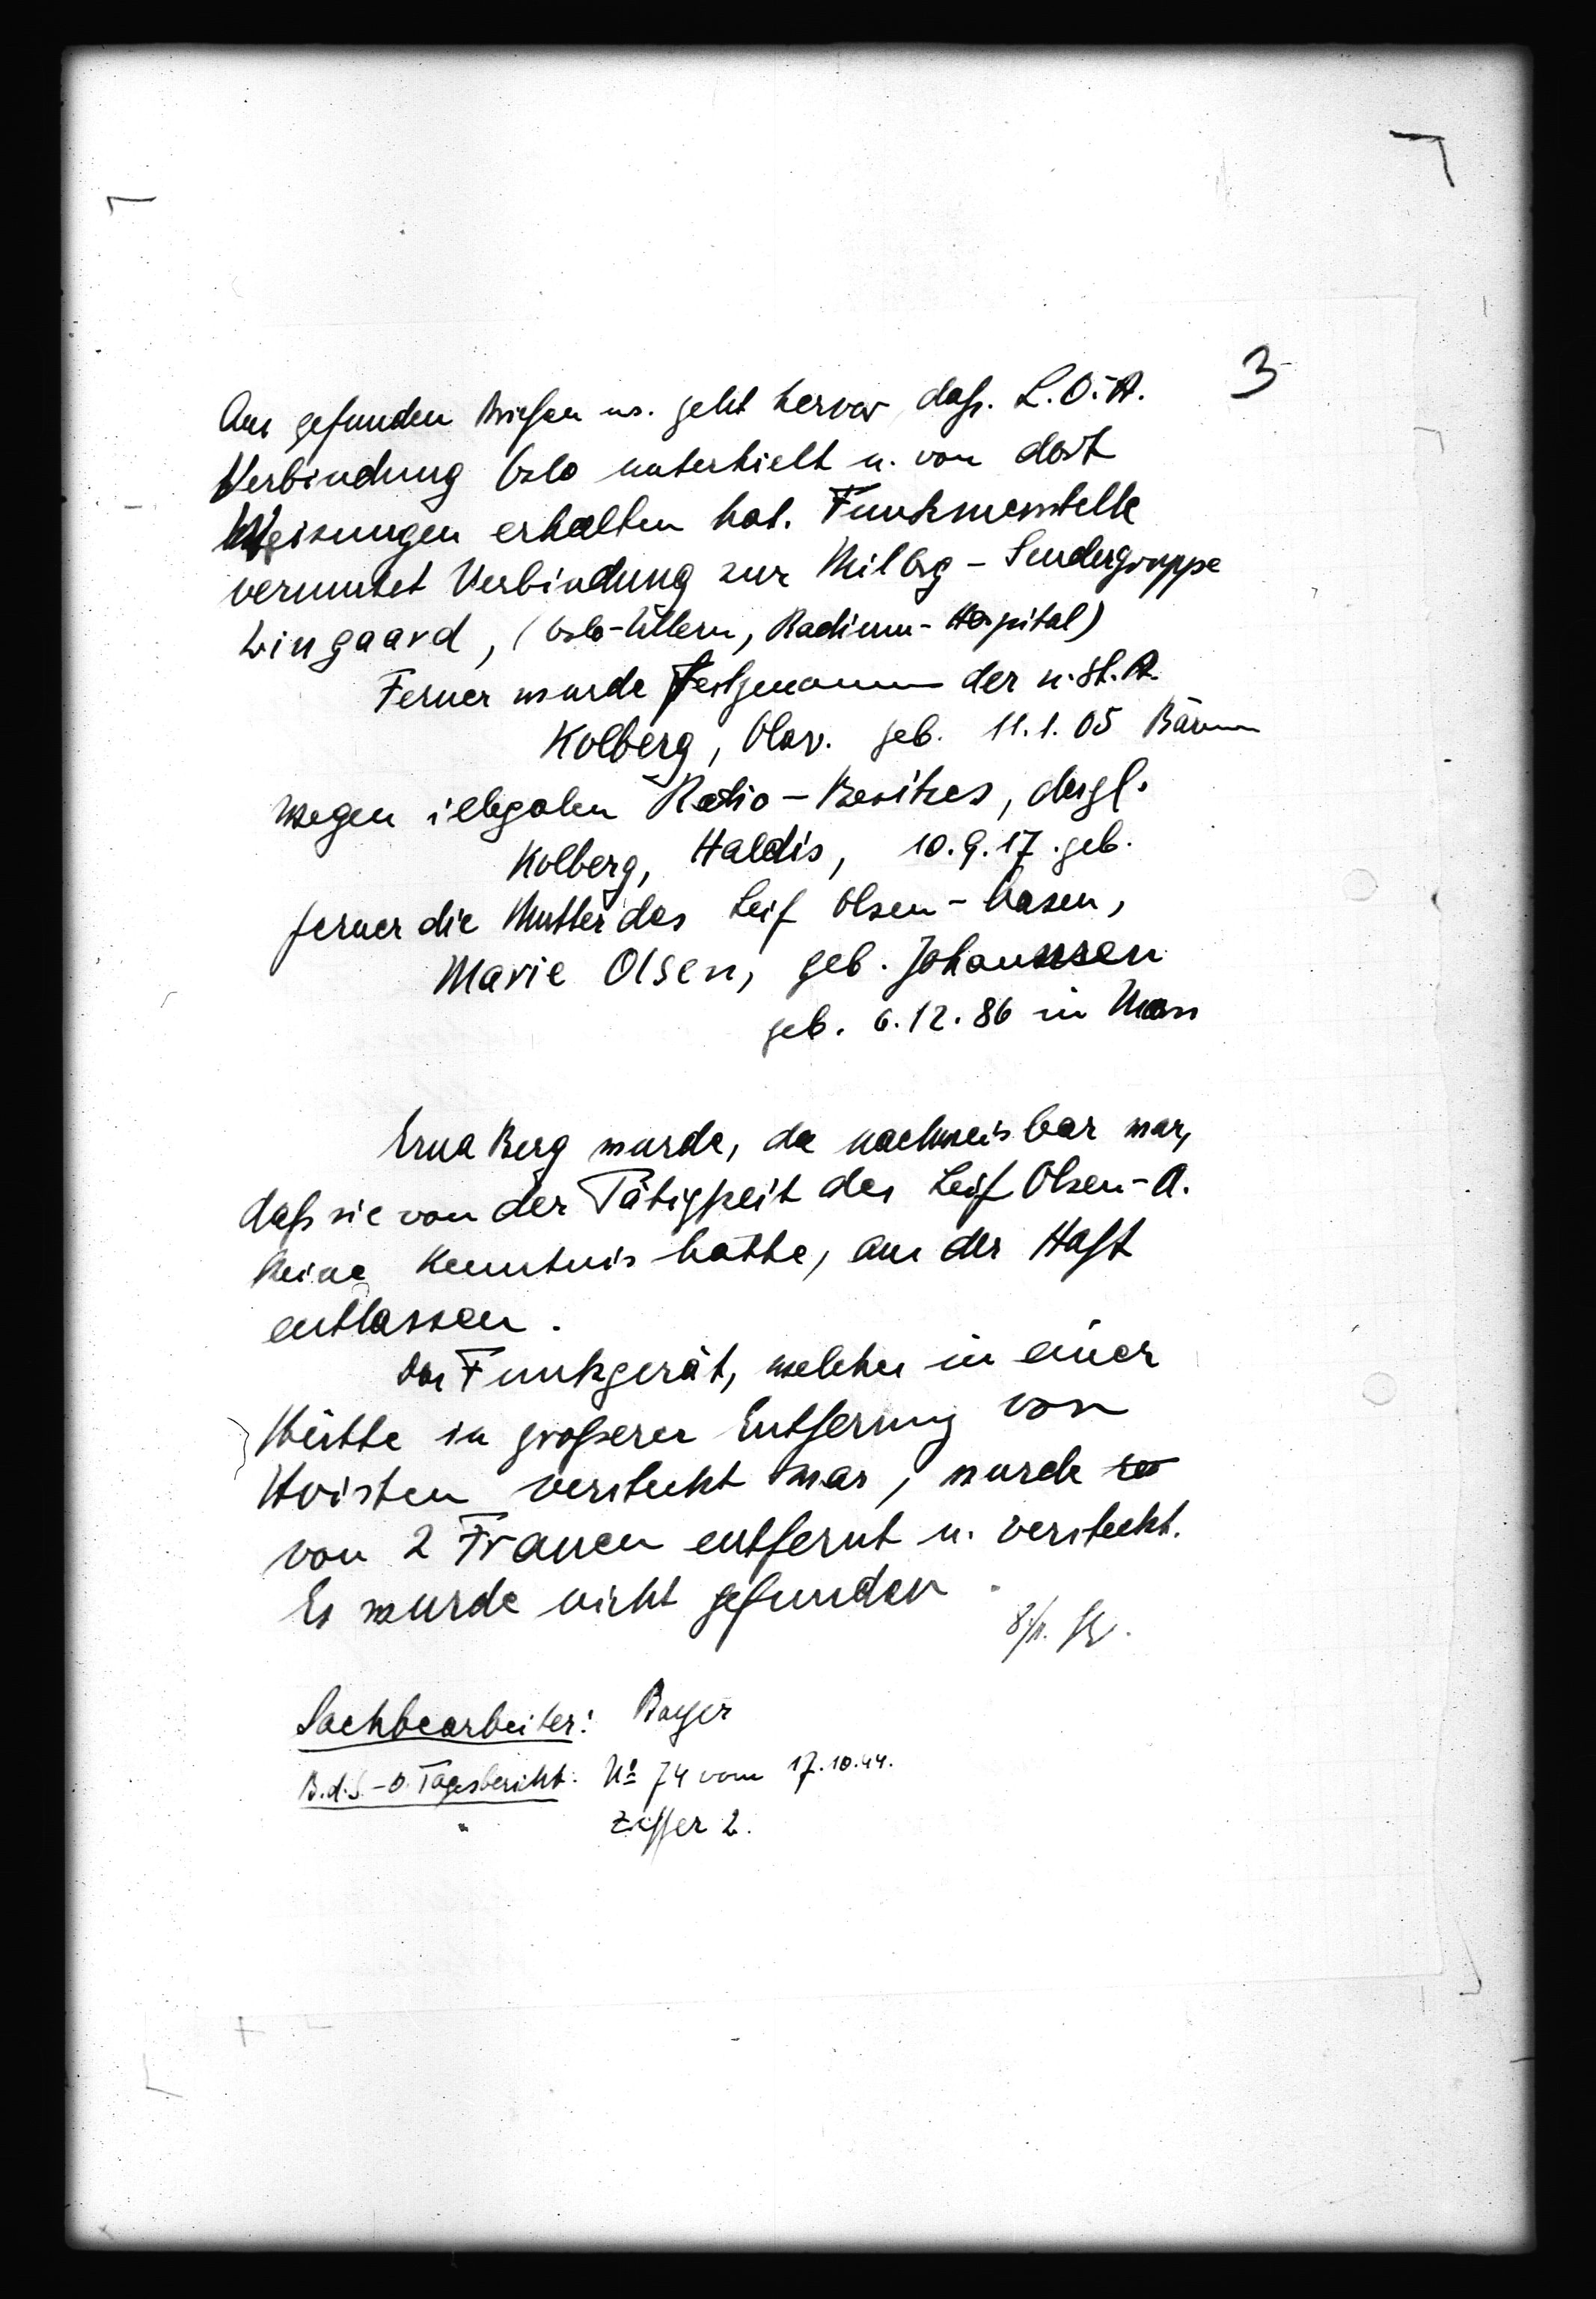 3
Aus gefunden Briefen us. geht hervor, daß. L.O.A.
Verbindung Oslo unterhielt u. von dort
Weisungen erhalten hat. Funkmesstelle
vermutet Verbindung zur Milorg - Sendergruppe
Lingaard, (Oslo-Ullern, Radium-Hospital)
Ferner wurde festgenommen der n.St.A.
Kolberg, Olav. geb. 11.1.05 Bärum
wegen illegalen Radio-Besitzes, desgl.
Kolberg, Haldis, 10.9.17. geb.
ferner die Mutter des Leif Olsen-Aasen,
Marie Olsen, geb. Johannsen
geb. 6.12.86 in Moss
Erna Berg wurde, da nachweisbar war,
daß sie von der Tätigkeit des Leif Olsen-A.
keine Kenntnis hatte, aus der Haft
entlassen.
Das Funkgerät, welches in einer
Hütte in großerer Entfernung von
Hvisten versteckt war, wurde
von 2 Frauen entfernt u. versteckt.
Es wurde nicht gefunden.
Sachbearbeiter: Bayer
B.d.S.-O. Tagesbericht: No 74 vom 17.10.44.
Ziffer 2.